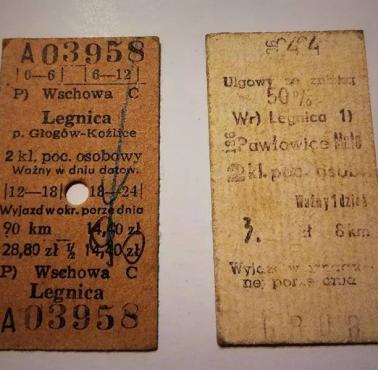 A03958
0—6 6—12
P) Wschowa C
Legnica
p. Głogów-Koźlice
2 kl. poc. osobowy
Ważny w dniu datow.
12—18 18—24
Wyjazd w okr. porze dnia
90 km 14,40 zł
28,80 zł ½ 14,40 zł
P) Wschowa C
Legnica
A03958
Ulgowy ze zniżką
50%
Wr) Legnica 1)
Pawłowice Małe
2 kl. poc. osobo
Ważny 1 dzień
3. zł 8 km
Wyjazd w
nej porze dnia